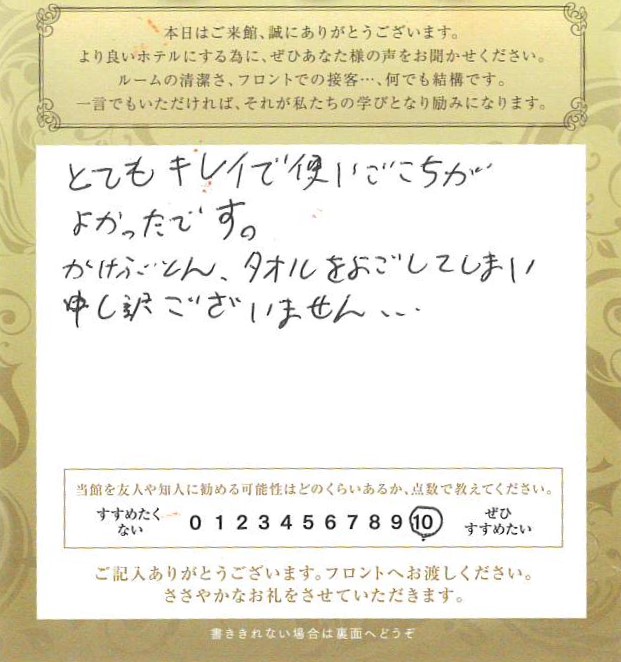 本日はご来館、誠にありがとうございます。
より良いホテルにする為に、ぜひあなた様の声をお聞かせください。
ルームの清潔さ、フロントでの接客…、何でも結構です。
一言でもいただければ、それが私たちの学びとなり励みになります。
とてもキレイで使いごこちが
よかったです。
かけぶとん、タオルをよごしてしまい
申し訳ございません...
当館を友人や知人に勧める可能性はどのくらいあるか、点数で教えてください。
すすめたくない 0 1 2 3 4 5 6 7 8 9 10 ぜひすすめたい
ご記入ありがとうございます。フロントへお渡しください。
ささやかなお礼をさせていただきます。
書ききれない場合は裏面へどうぞ